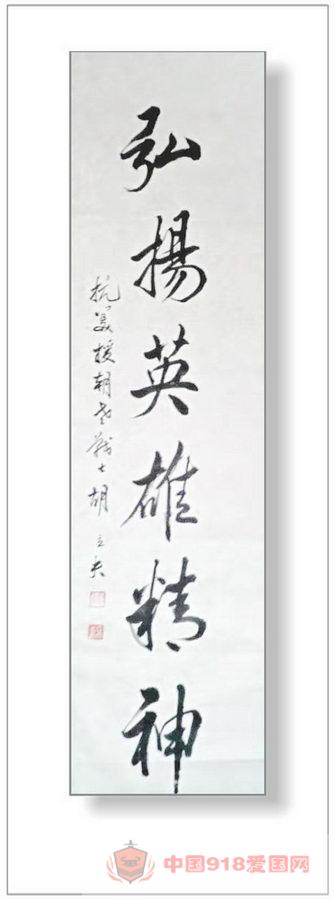 弘揚英雄精神
抗美援朝老戰士胡立夫
中国918爱国网